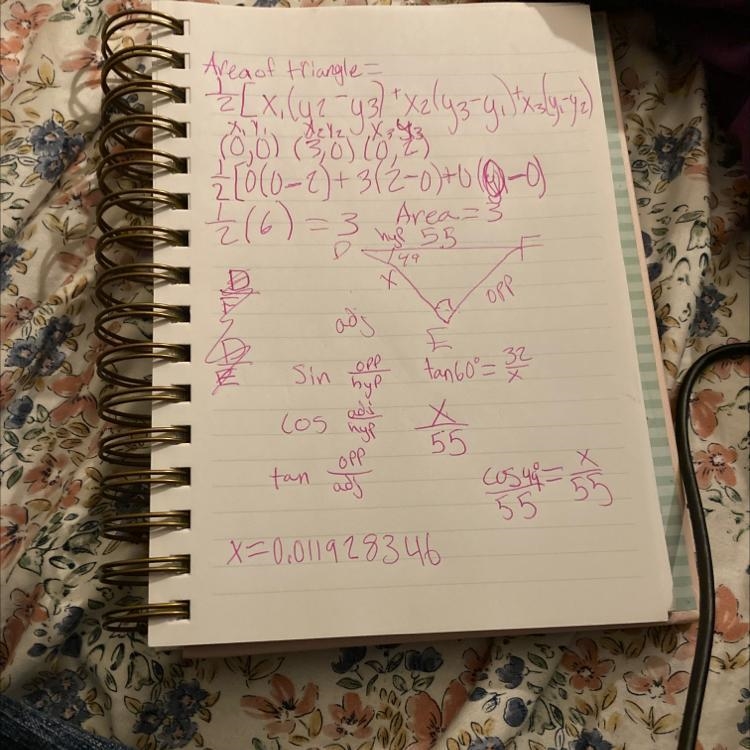 Area of triangle =
1/2 [x₁(y₂-y₃)+x₂(y₃-y₁)+x₃(y₁-y₂)
x₁y₁ x₂y₂ x₃y₃
(0,0) (3,0) (0,2)
1/2[0(0-2)+3(2-0)+0( -0)
1/2(6) = 3 Area=3
D hyp 55 F
49
x opp
E
adj
D/F
D/E
sin opp/hyp tan60°=32/x
cos adj/hyp x/55
tan opp/adj cos49°/55=x/55
x=0.011928346